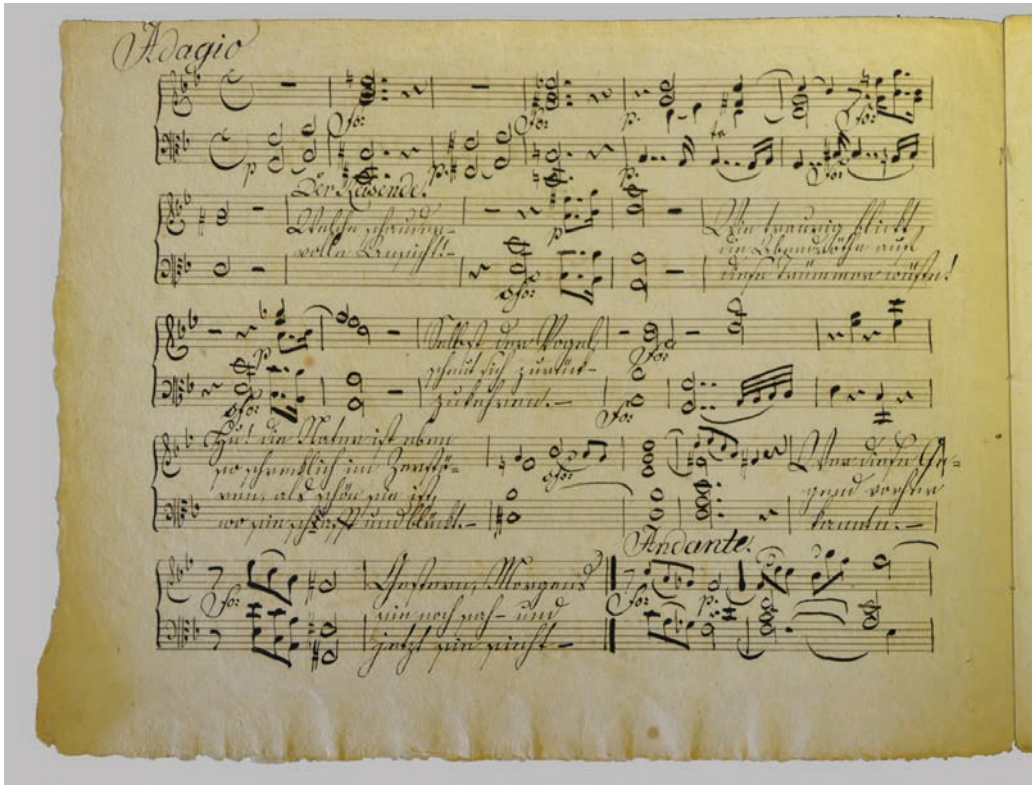 Adagio
p
fo:
p.
fo:
p.
p.
te
fo:
fo:
Der Reisende.
Welche schauder-
volle Ansicht! –
p
sfo:
Wie traurig blickt,
die Abendröthe auf
diese Trümmer wüste!
p.
sfo:
Selbst der Vogel,
scheut sich zurük-
zukehren. –
fo:
fo:
Hu! die Natur ist eben
so schrecklich im Zerstö-
ren, als schön sie ist,
wo sie schafft und blüht. –
sfo:
Wer diese Ge-
gend vorher
kannte. –
fo:
Gestern, Morgens
sie noch sah – und
jetzt sie sieht –
Andante.
fo:
p.